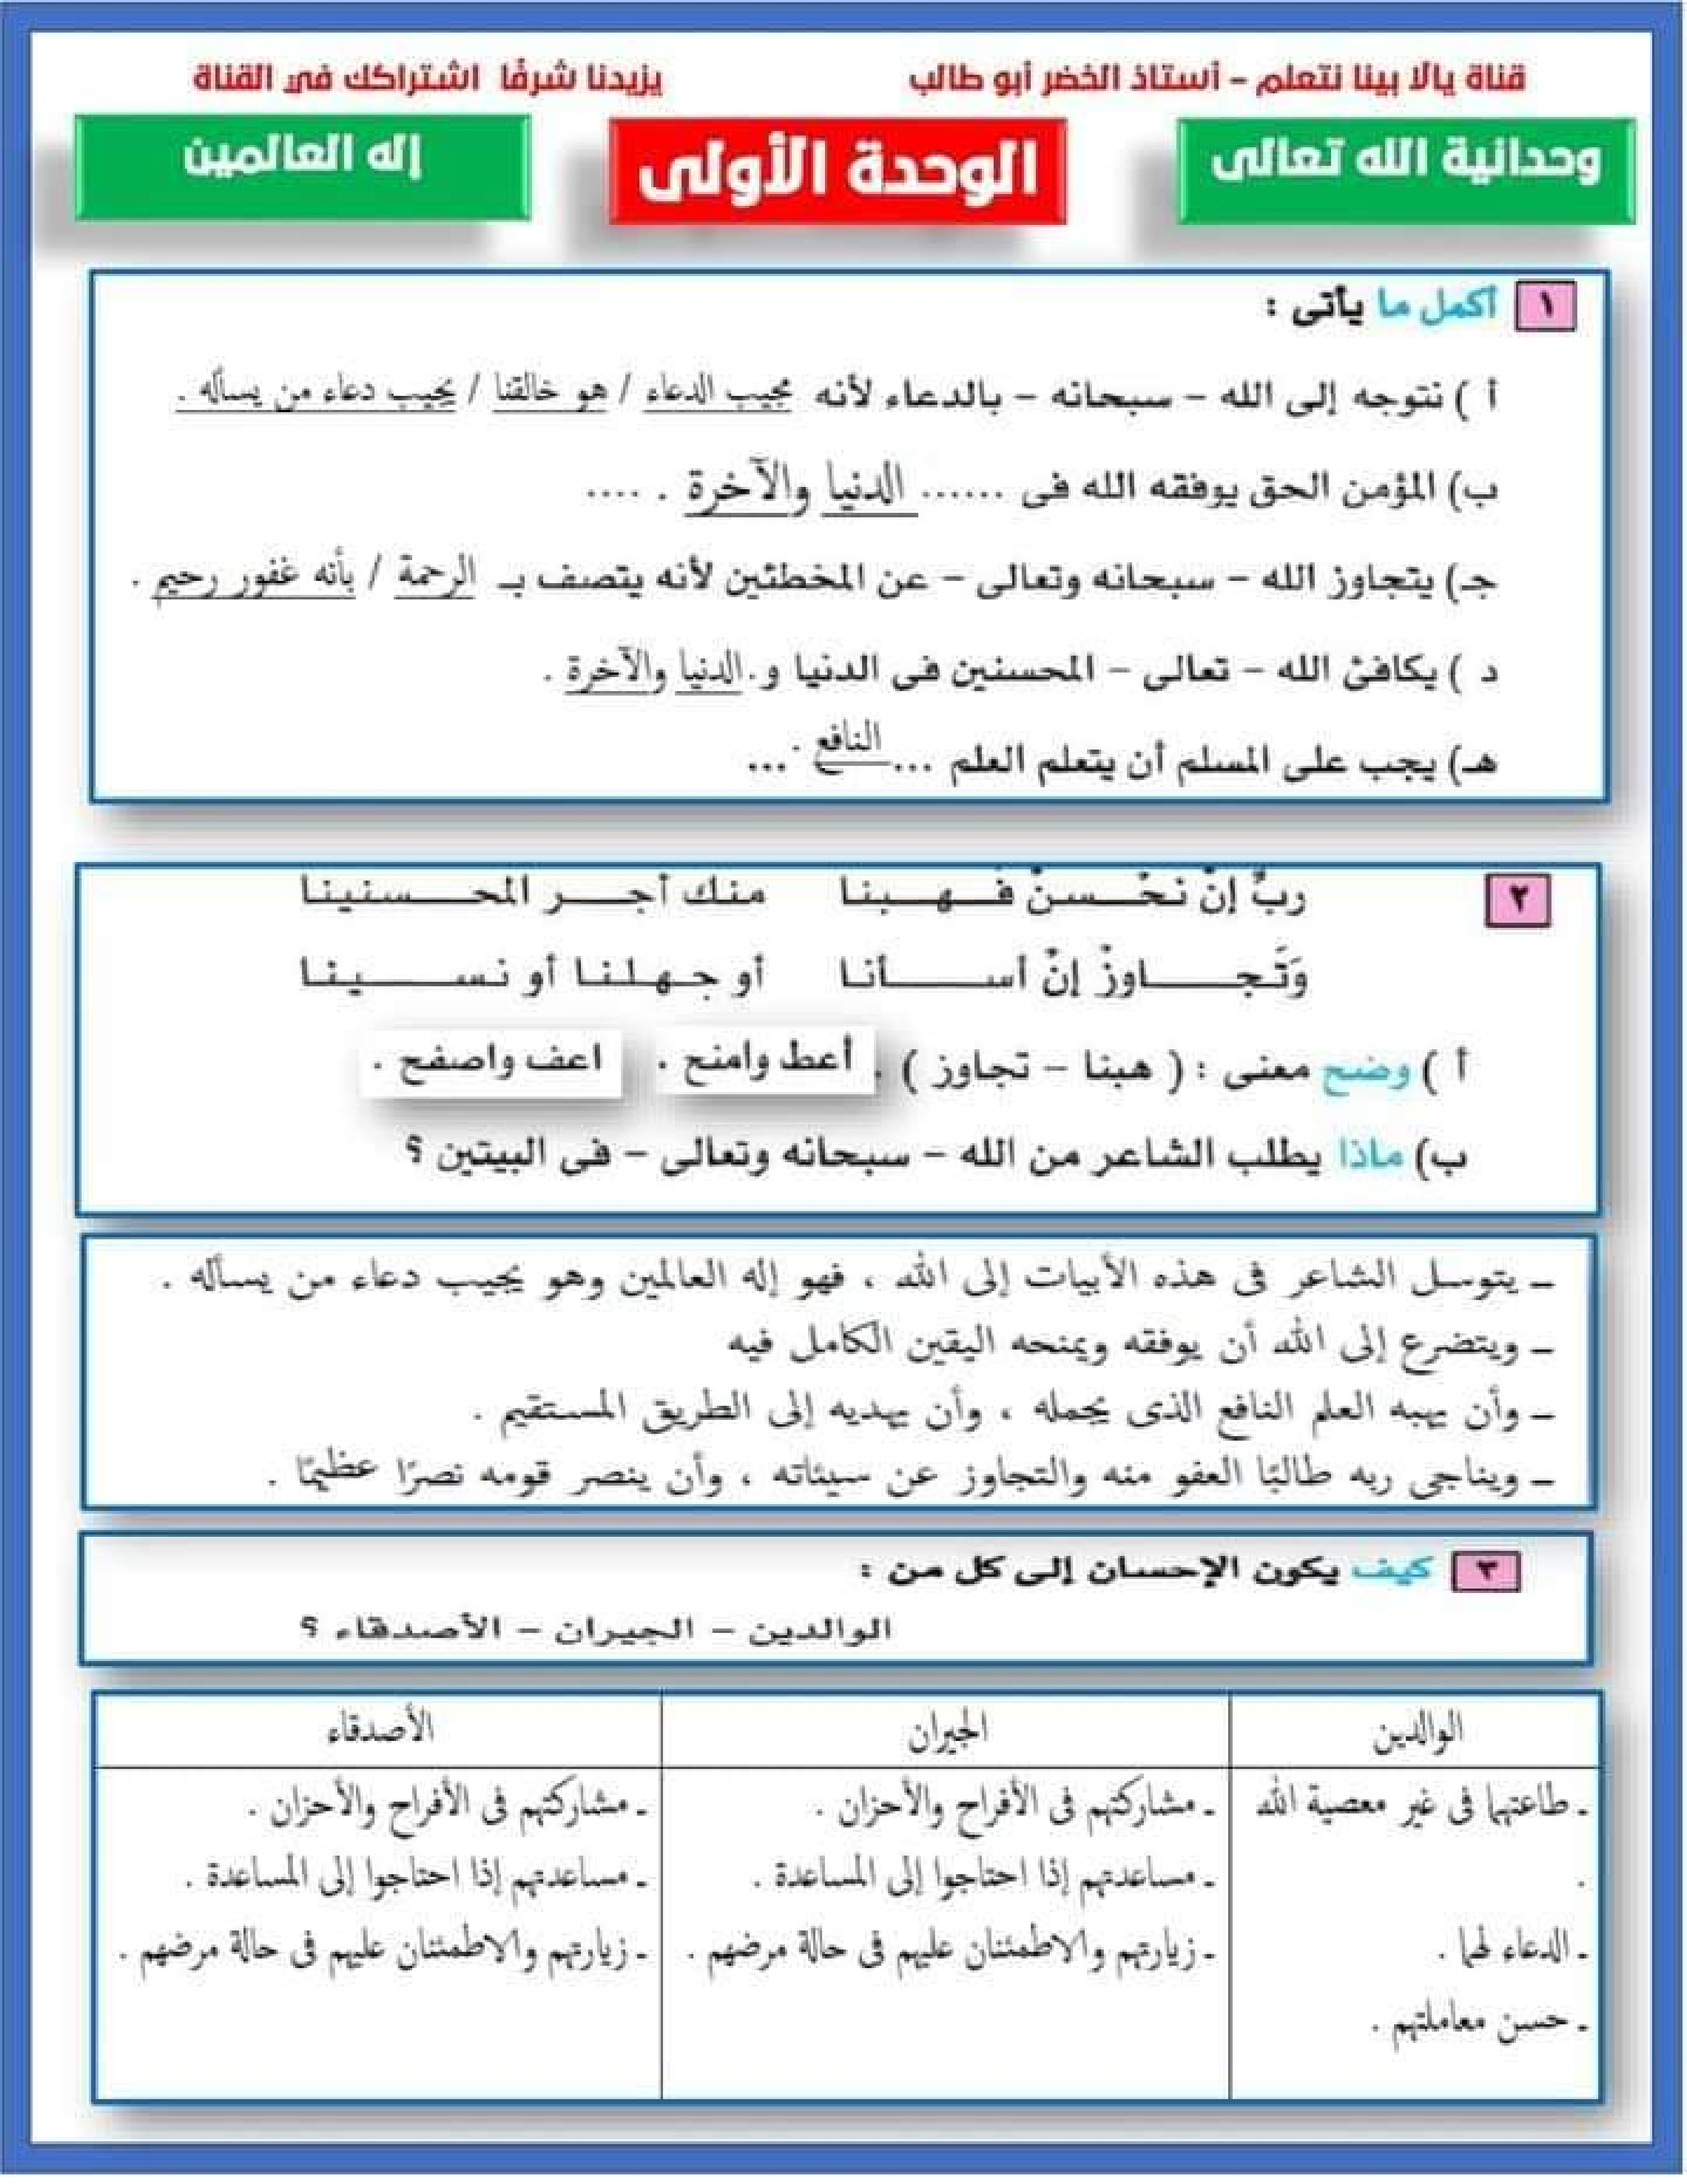 قناة يالا بينا نتعلم – أستاذ الخضر أبو طالب يزيدنا شرفًا اشتراكك في القناة
وحدانية الله تعالى الوحدة الأولى إله العالمين
١ أكمل ما يأتى :
أ ) نتوجه إلى الله – سبحانه – بالدعاء لأنه مجيب الدعاء / هو خالقنا / يجيب دعاء من يسأله .
ب) المؤمن الحق يوفقه الله فى ...... الدنيا والآخرة . ....
جـ) يتجاوز الله – سبحانه وتعالى – عن المخطئين لأنه يتصف بـ الرحمة / بأنه غفور رحيم .
د ) يكافئ الله – تعالى – المحسنين فى الدنيا و. الدنيا والآخرة .
هـ) يجب على المسلم أن يتعلم العلم ... النافع . ...
٢ ربِّ إنْ نحْـــسنْ فـــهـــبنا منك أجـــر المحـــسنينا
وَتَجـــاوزْ إنْ أســـأنا أو جـهـلنا أو نســـينا
أ ) وضح معنى : ( هبنا – تجاوز ) . أعط وامنح . اعف واصفح .
ب) ماذا يطلب الشاعر من الله – سبحانه وتعالى – فى البيتين ؟
ـ يتوسل الشاعر فى هذه الأبيات إلى الله ، فهو إله العالمين وهو يجيب دعاء من يسأله .
ـ ويتضرع إلى الله أن يوفقه ويمنحه اليقين الكامل فيه
ـ وأن يهبه العلم النافع الذى يجمله ، وأن يهديه إلى الطريق المستقيم .
ـ ويناجى ربه طالبًا العفو منه والتجاوز عن سيئاته ، وأن ينصر قومه نصرًا عظيمًا .
٣ كيف يكون الإحسان إلى كل من :
الوالدين – الجيران – الأصدقاء ؟
الوالدين الجيران الأصدقاء
ـ طاعتهما فى غير معصية الله ـ مشاركتهم فى الأفراح والأحزان . ـ مشاركتهم فى الأفراح والأحزان .
. ـ مساعدتهم إذا احتاجوا إلى المساعدة . ـ مساعدتهم إذا احتاجوا إلى المساعدة .
ـ الدعاء لهما . ـ زيارتهم والاطمئنان عليهم فى حالة مرضهم . ـ زيارتهم والاطمئنان عليهم فى حالة مرضهم .
ـ حسن معاملتهم .